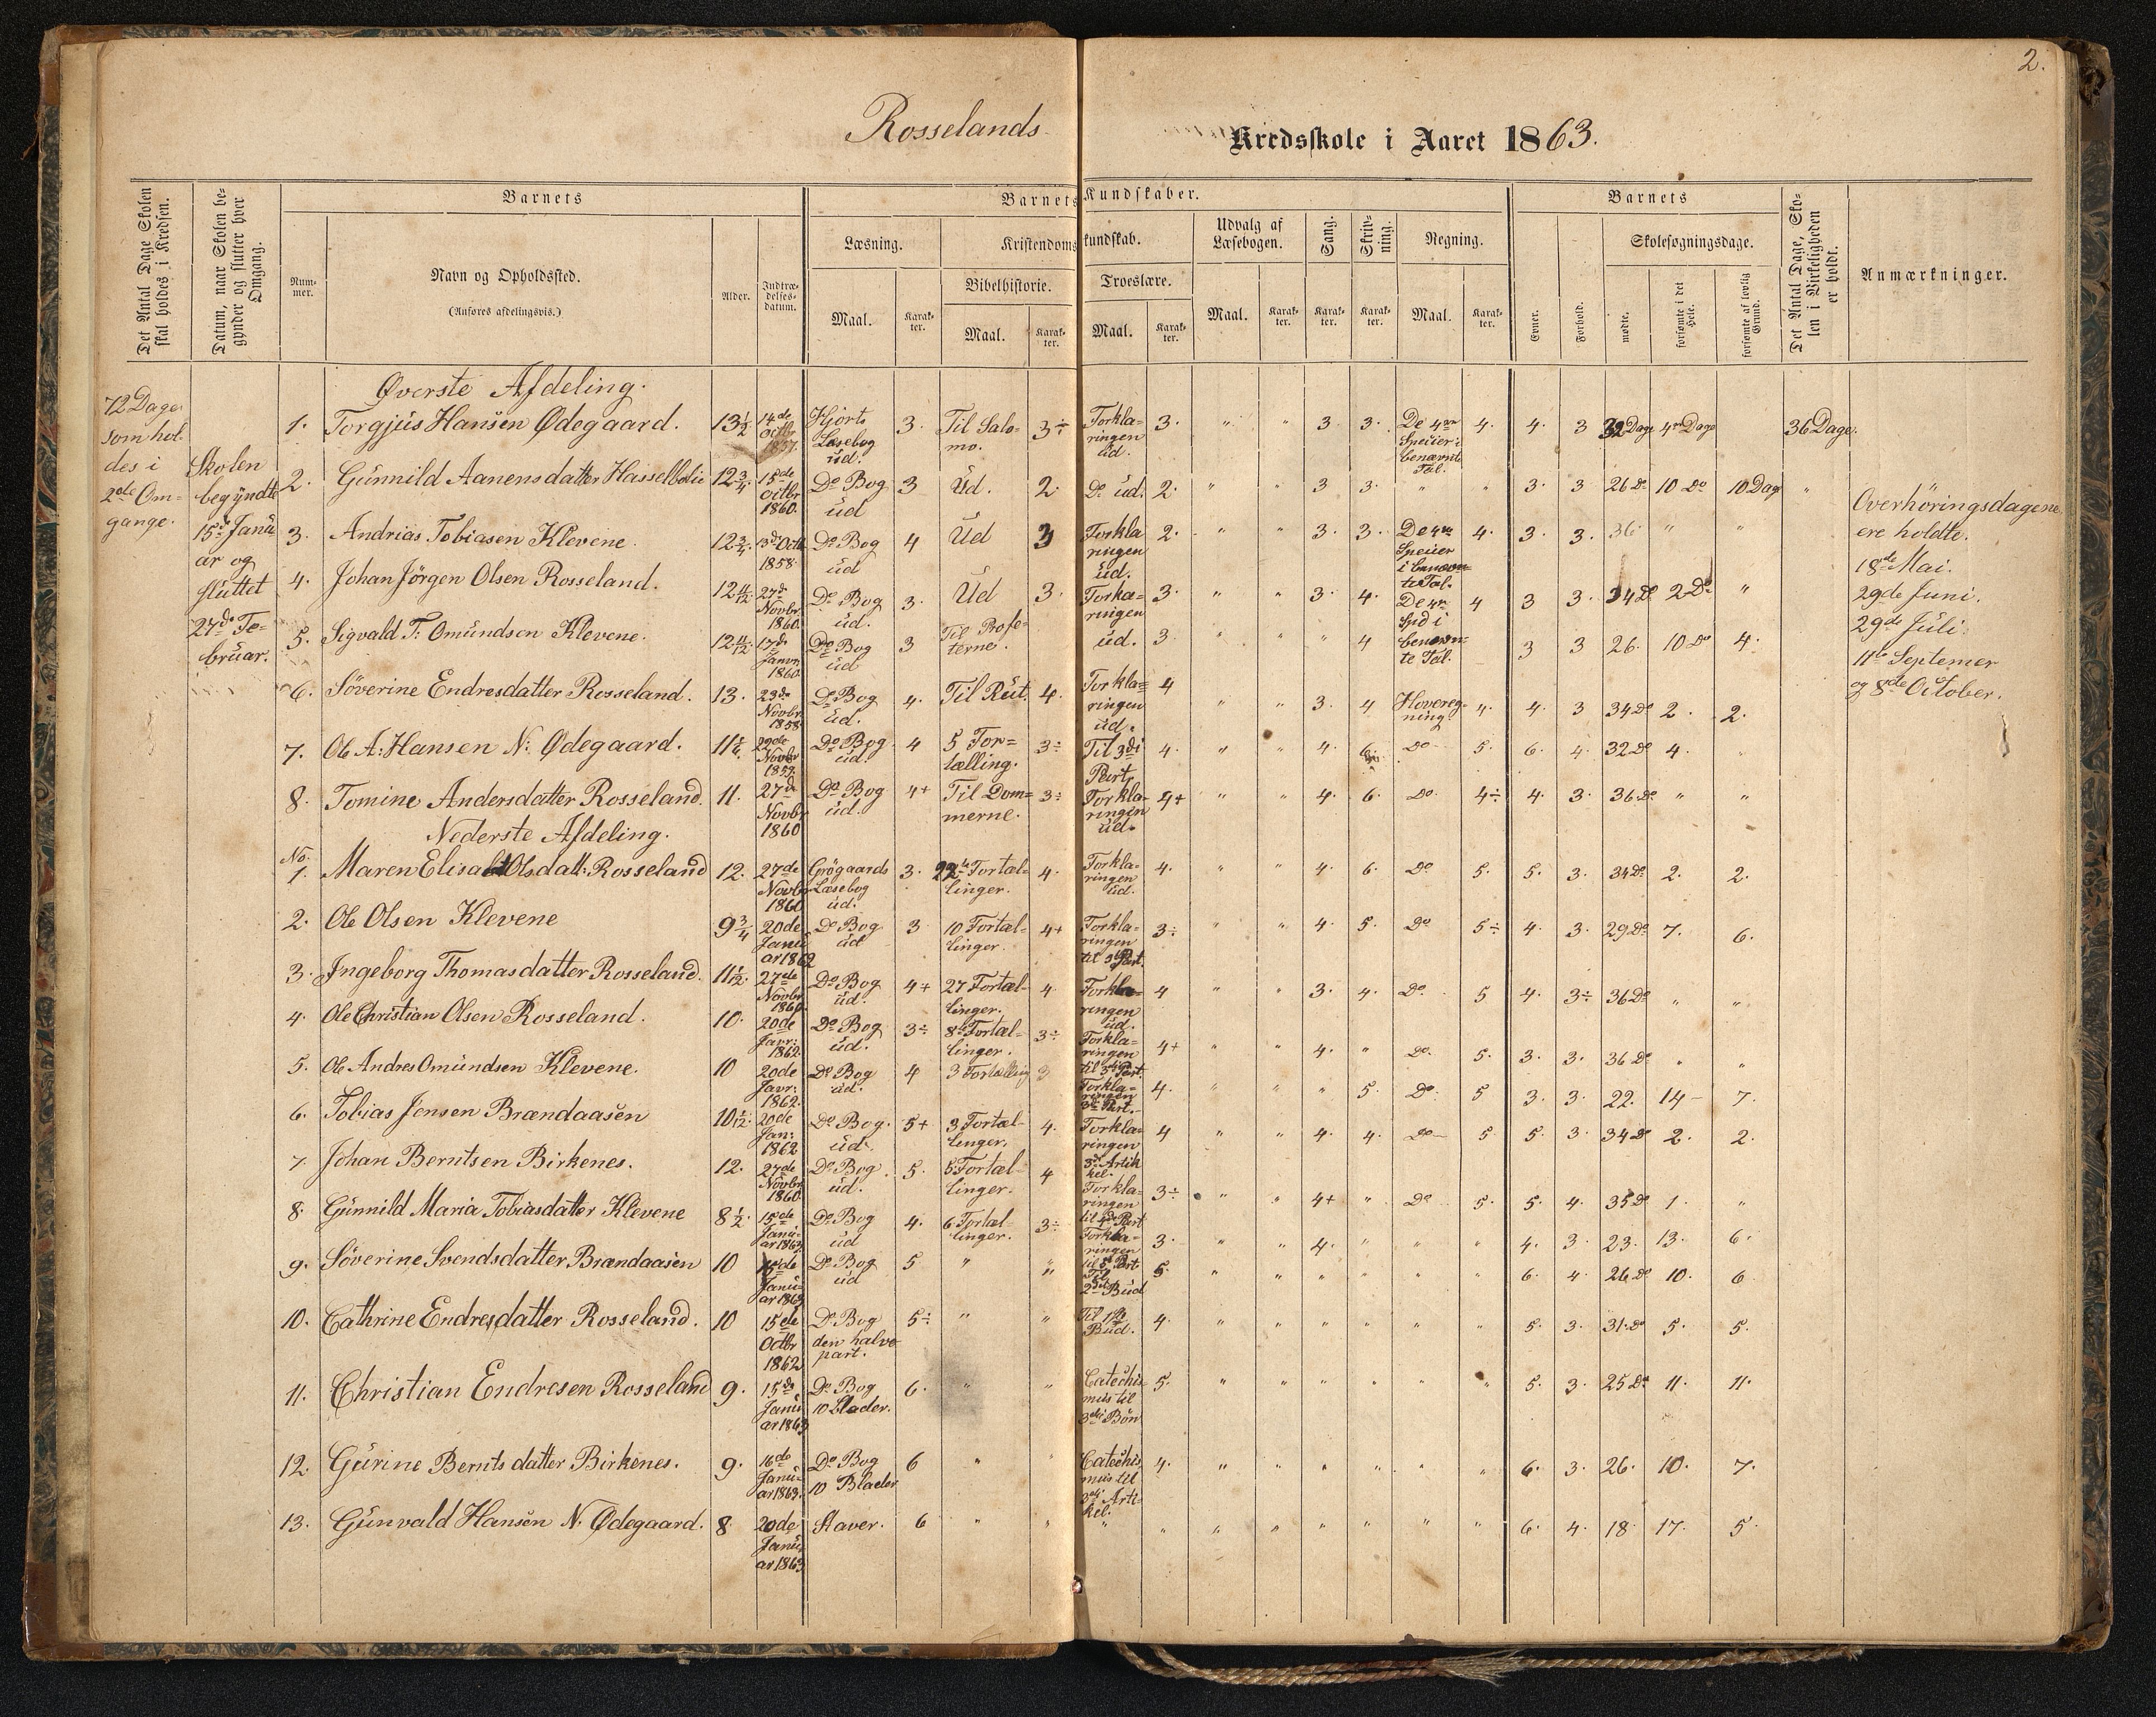 2.
Rosselands Kredsskole i Aaret 1863.
Det Antal Dage Skolen skal holdes i Kredsen.
Datum, naar Skolen begynder og slutter hver Omgang.
Barnets
Nummer.
Navn og Opholdssted.
(Anføres afdelingsvis.)
Alder.
Indtrædelsesdatum.
Barnets Kundskaber.
Læsning.
Maal.
Karakter.
Kristendomskundskab.
Bibelhistorie.
Maal.
Karakter.
Troeslære.
Maal.
Karakter.
Udvalg af Læsebogen.
Maal.
Karakter.
Sang.
Karakter.
Skrivning.
Karakter.
Regning.
Maal.
Karakter.
Barnets
Evner.
Forhold.
Skolesøgningsdage.
mødte.
forsømte i det Hele.
forsømte af lovlig Grund.
Det Antal Dage, Skolen i Virkeligheden er holdt.
Anmærkninger.
72 Dage som holdes i 2de Omgange.
Skolen begyndte 15de Januar og sluttet 27de Februar.
Øverste Afdeling.
1. Torgjus Hansen Ødegaard. 13½ 14de Octbr 1857. Hjorts Læsebog ud. 3. Til Salomo. 3÷ Forklaringen ud. 3. " " 3 3. De 4re Speiier i benævnte Tal. 4. 4. 3 32 Dage 4re Dage 36 Dage.
2. Gunnild Aanensdatter Hasselbolie 12¾ 15de Octbr 1860. Do Bog ud 3 Ud. 2. Do ud. 2. " " 3 3. " " 3. 3 26 Do 10 Do 10 Dag "
3. Andrias Tobiasen Klevene. 12¾ 13de Octb 1858. Do Bog ud 4 Ud 3 Forklaringen ud. 2. " " 3. 3. De 4re Speiier i benævnte Tal. 4. 3. 3. 36 " "
4. Johan Jörgen Olsen Rosseland. 12 4/12 27de Novbr 1860. Do Bog ud. 3. Ud 3. Forkaringen 3. " " 3. 4. De 4re Spd i benævnte Tal. 4 3 3. 34 Do 2 Do "
5. Sigvald T: Omundsen Klevene. 12 4/12 17de Janvr. 1860. Do Bog ud 3 Til Profeterne. ud. 3. " " " 4 3 3 26. 10 Do 4.
6. Söverine Endresdatter Rosseland. 13. 23de Novbr 1858. Do Bog ud. 4. Til Rut. 4. Forklaringen ud. 4 " " 3. 4 Hoveregning 4. 4. 3 34 Do 2. 2.
7. Ole A: Hansen N: Ødegaard. 11¼. 29de Novbr 1859. Do Bog ud. 4 5 Fortælling. 3÷ Til 3di Part. 4. " " 4. 6. Do 5. 6. 4. 32 Do 4. "
8. Tomine Andersdatter Rosseland. 11. 27de Novbr 1860 Do Bog ud. 4+ Til Dommerne. 3÷ Forklaringen ud. 4+ " " 4. 6. Do. 4÷ 4. 3. 36 Do " "
Nederste Afdeling.
No. 1. Maren Elisabt Olsdatt: Rosseland 12. 27de Novbr 1860 Grögaards Læsebog ud. 3. 22 Fortællinger. 4. Forklaringen ud. 4. " " 4. 6. Do 5. 5. 3. 34 Do 2. 2.
2. Ole Olsen Klevene 9¾ 20de Januar 1862 Do Bog ud 3 10 Fortællinger. 4+ Forklaringen til 3 Part. 3÷ " " 4. 5. Do 5÷ 4. 3. 29 Do 7. 6.
3. Ingeborg Thomasdatter Rosseland. 11 1/12. 27de Novbr 1860. Do Bog ud. 4+ 27 Fortællinger. 4. Forklaringen ud. 4 " " 3. 4. Do. 5 4. 3÷ 36 Do " "
4. Ole Christian Olsen Rosseland. 10. 20de Janr: 1862. Do Bog ud. 3÷ 8 Fortællinger. 3÷ Forklaringen til 3 Part 4+ " " 4. " Do. 5. 3. 3. 36 Do " "
5. Ole Andres Omundsen Klevene. 10 20de Javr: 1862. Do Bog ud. 4 3 Fortælling 3 Forklaringen 3 Part. 4. " " " 5. Do 5 3. 3. 22. 14 7.
6. Tobias Jensen Brændaasen 10 1/12. 20de Jan: 1862 Do Bog. ud. 5+ 3 Fortællinger. 4. Forklaringen 3de Artikkel. 4 " " 4. 4. Do 5 5. 3. 34 Do 2. 2.
7. Johan Berntsen Birkenes. 12. 27de Novbr 1860. Do Bog. ud. 5. 5 Fortællinger. 4 Forklaringen til Part 3÷ " " 4+ " Do 5. 5. 4. 35 Do 1. "
8. Gunnild Maria Tobiasdatter Klevene 8½ 15de Januar 1863. Do Bog ud 4. 6 Fortællinger. 3÷ Forklaringen til 3 Part 3. " " 4. " " " 4. 3. 23. 13. 6.
9. Söverine Svendsdatter Brændaasen 10 15de Januar 1863 Do Bog ud 5 " " Til 2det Bud 5. " " " " " " 6. 4. 26 Do 10. 6
10. Cathrine Endresdatter Rosseland. 10 15de Octbr 1862 Do Bog den halve part. 5÷ " " Til 1ste Bud. 4. " " " " " " 5. 3. 31. Do 5. 5.
11. Christian Endresen Rosseland 9. 15de Januar 1863 Do Bog 10 Blader. 6. " " Catechismus til 3die Bön 5. " " " " " " 5. 3. 25 Do 11. 11.
12. Gurine Berntsdatter Birkenes. 9. 16de Januar 1863. Do Bog 10 Blader 6 " " Catechismus til 3die Artikel. 4. " " " " " " 6. 3. 26. 10. 7.
13. Gunvald Hansen N. Ødegaard. 8 20de Januar 1863 Staver. 6 " " " " " " " " " " 6. 4. 18 17. 5.
Overhöringsdagene
ere holdte.
18de Mai.
29de Juni.
29de Juli.
11te Septemer
og 8de October.